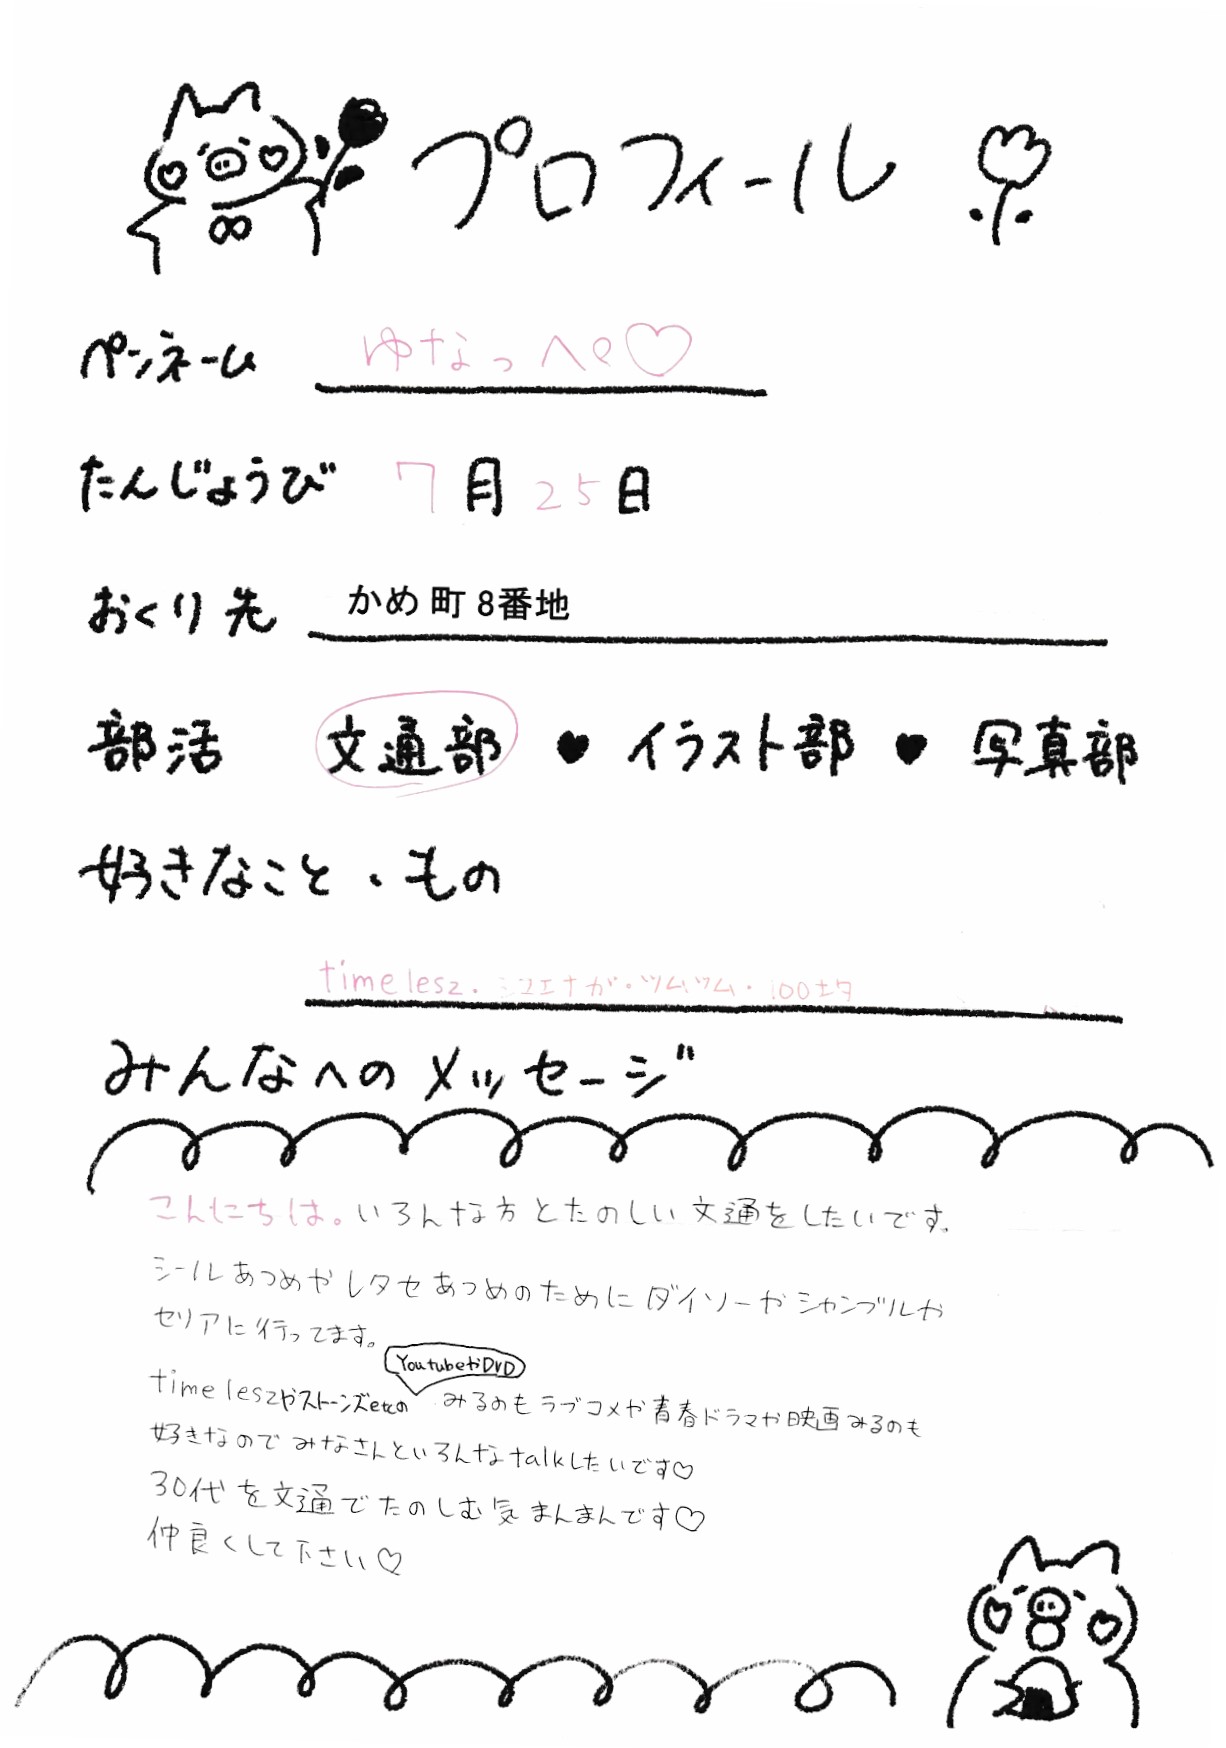 プロフィール
ペンネーム ゆなっぺ♡
たんじょうび 7月25日
おくり先 かめ町 8番地
部活 文通部 ♥ イラスト部 ♥ 写真部
好きなこと・もの
timelesz・シマエナガ・ツムツム・100均
みんなへのメッセージ
こんにちは。いろんな方とたのしい文通をしたいです。
シールあつめやレタセあつめのためにダイソーやシャンブルや
セリアに行ってます。
YoutubeやDVD
timeleszやストーンズetcの みるのもラブコメや青春ドラマや映画みるのも
好きなのでみなさんといろんなtalkしたいです♡
30代を文通でたのしむ気まんまんです♡
仲良くして下さい♡